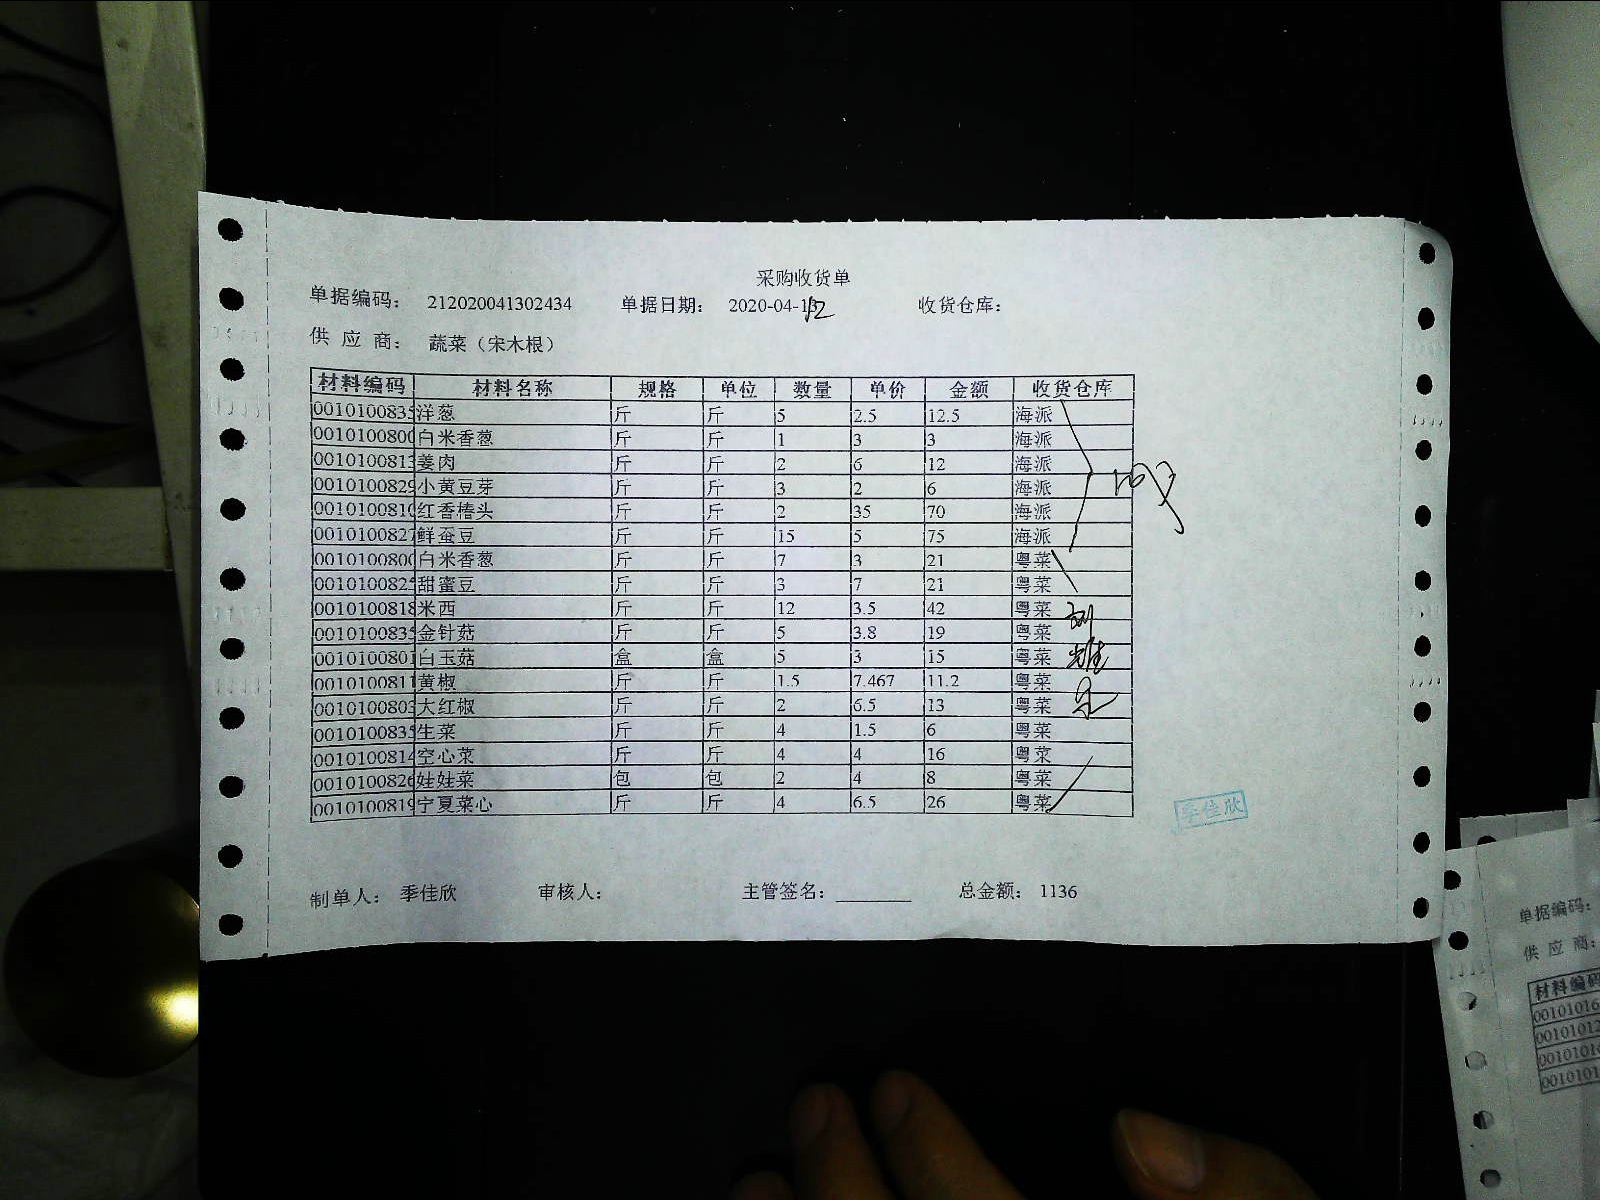 采购收货单
单据编码： 212020041302434 单据日期： 2020-04-13 收货仓库：
12
供 应 商： 蔬菜（宋木根）
材料编码 材料名称 规格 单位 数量 单价 金额 收货仓库
0010100835 洋葱 斤 斤 5 2.5 12.5 海派
0010100800 白米香葱 斤 斤 1 3 3 海派
0010100813 姜肉 斤 斤 2 6 12 海派
0010100829 小黄豆芽 斤 斤 3 2 6 海派
0010100810 红香椿头 斤 斤 2 35 70 海派
0010100827 鲜蚕豆 斤 斤 15 5 75 海派
0010100800 白米香葱 斤 斤 7 3 21 粤菜
0010100825 甜蜜豆 斤 斤 3 7 21 粤菜
0010100818 米西 斤 斤 12 3.5 42 粤菜
0010100835 金针菇 斤 斤 5 3.8 19 粤菜
0010100801 白玉菇 盒 盒 5 3 15 粤菜
0010100811 黄椒 斤 斤 1.5 7.467 11.2 粤菜
0010100803 大红椒 斤 斤 2 6.5 13 粤菜
0010100835 生菜 斤 斤 4 1.5 6 粤菜
0010100814 空心菜 斤 斤 4 4 16 粤菜
0010100826 娃娃菜 包 包 2 4 8 粤菜
0010100819 宁夏菜心 斤 斤 4 6.5 26 粤菜
季佳欣
制单人： 季佳欣 审核人： 主管签名： 总金额： 1136
单据编码：
供 应 商：
材料编码
00101016
00101012
00101010
0010101